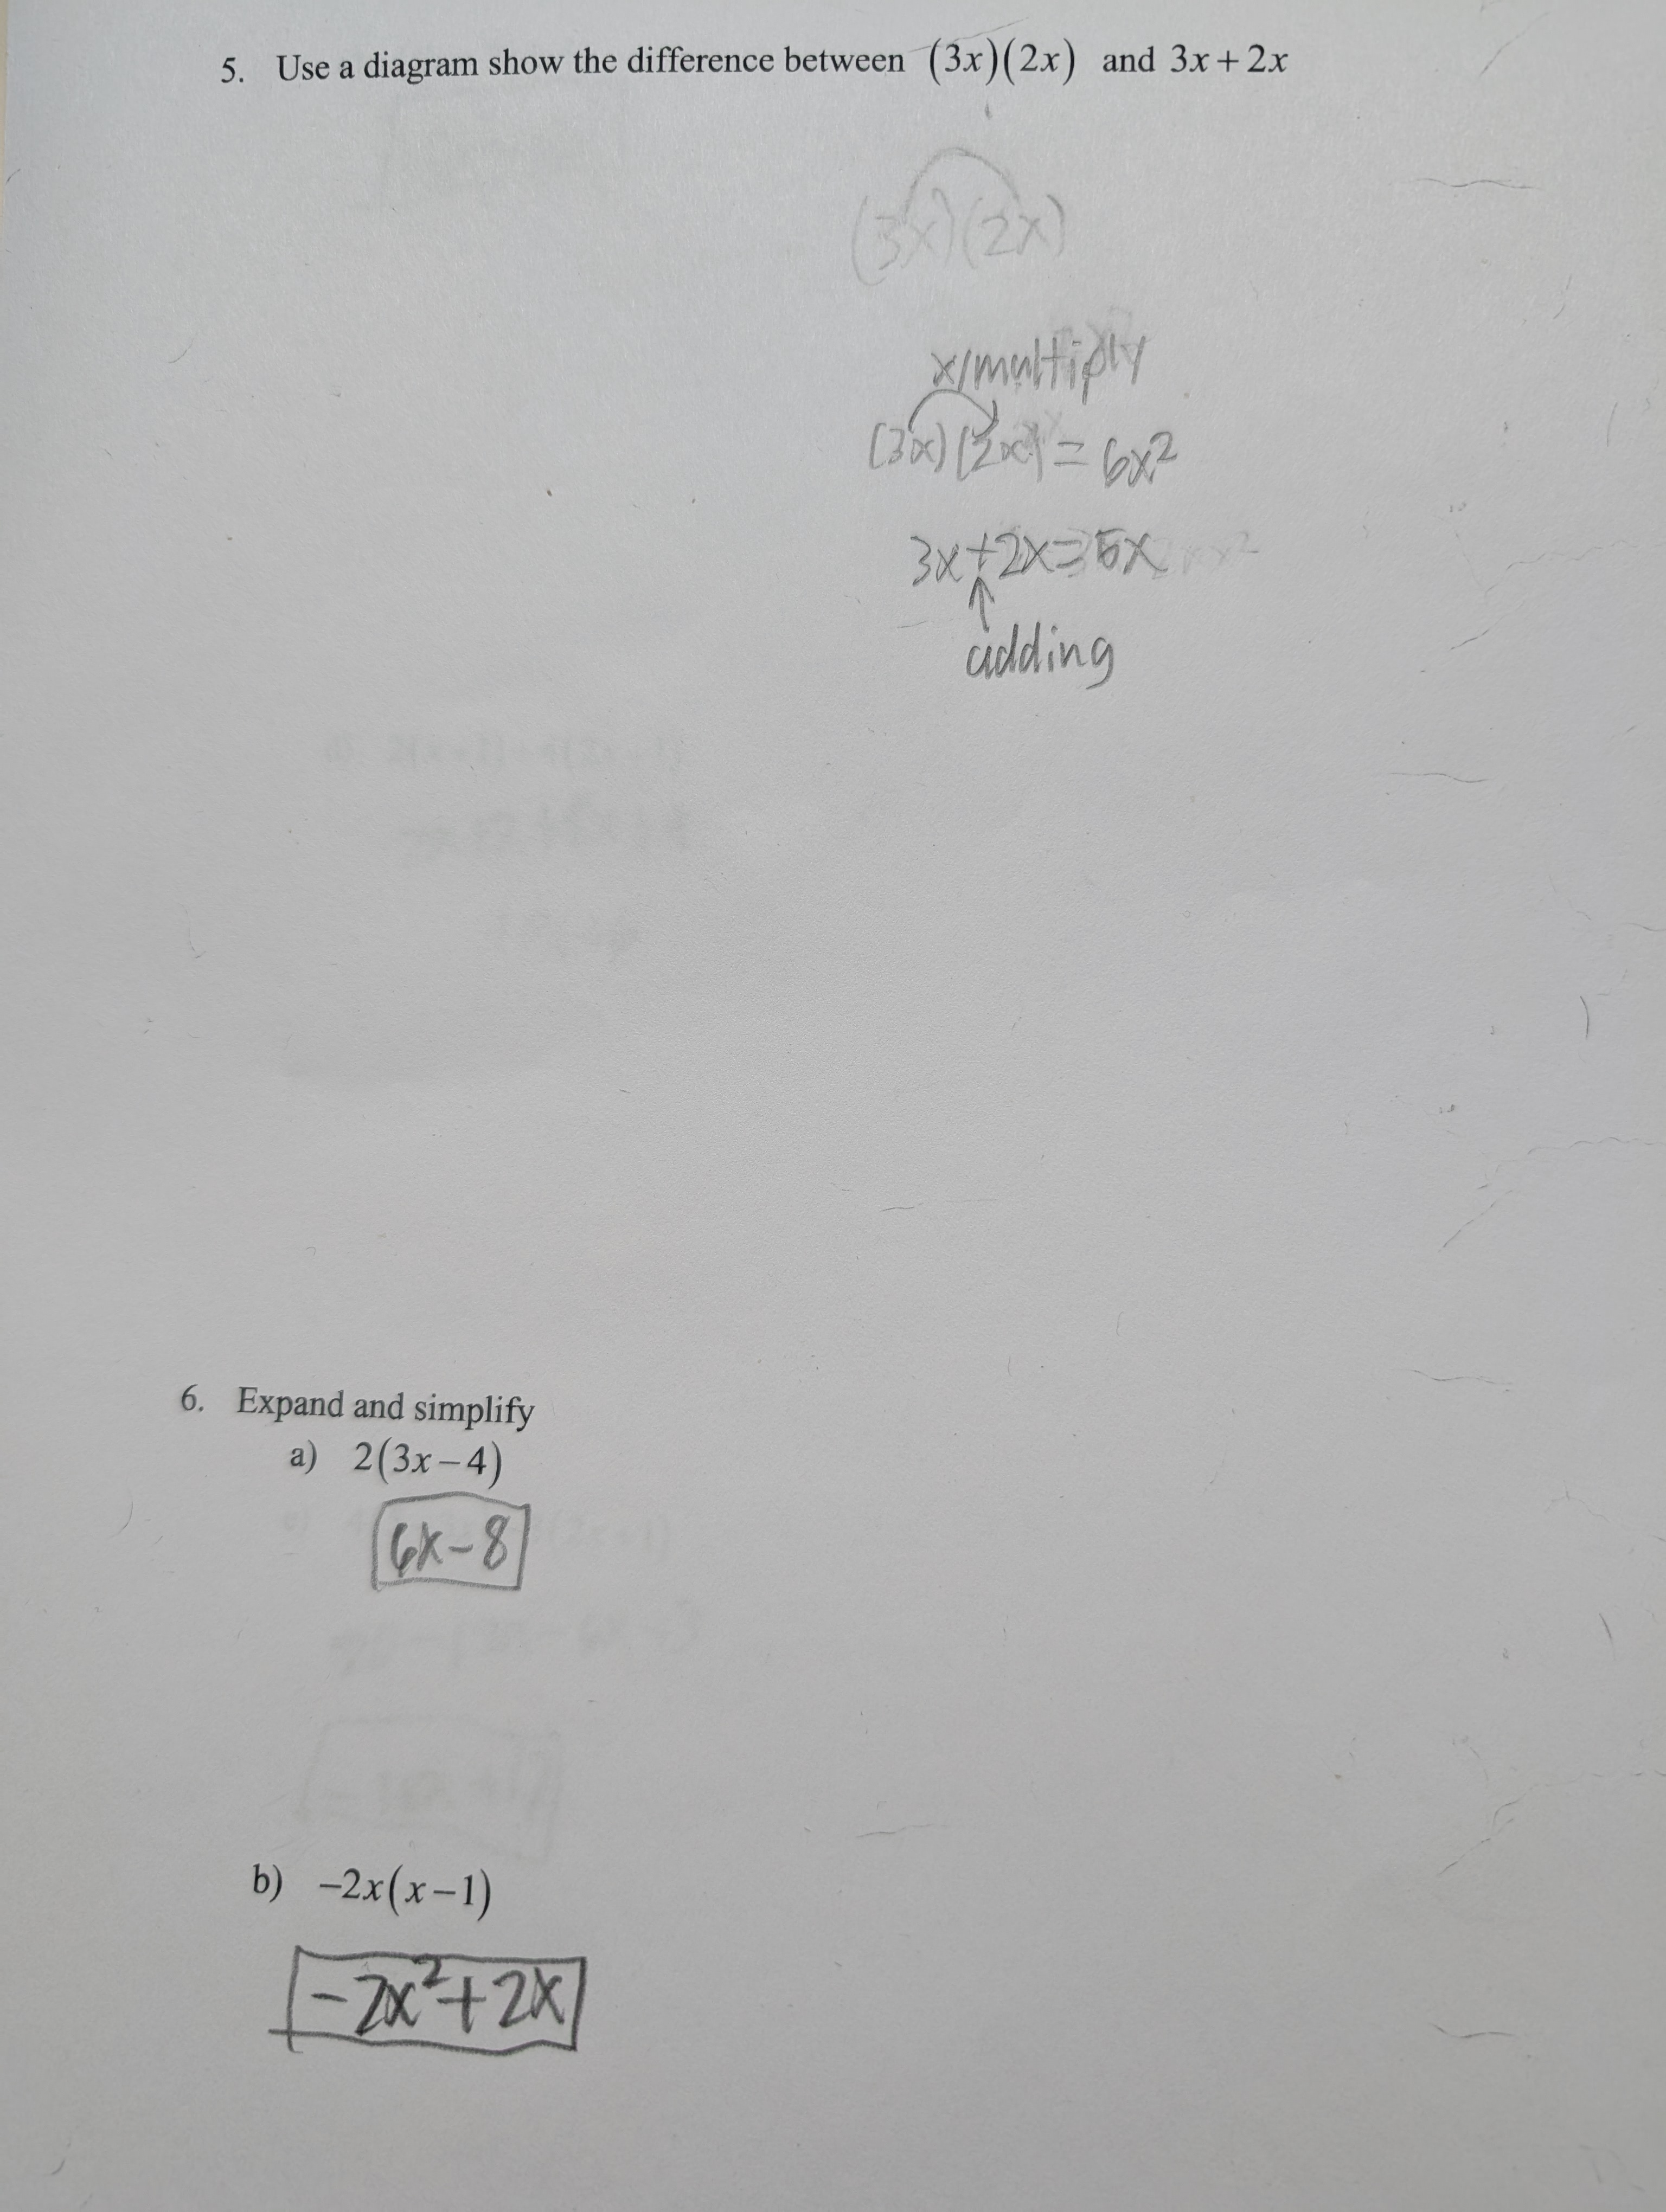 5. Use a diagram show the difference between (3x)(2x) and 3x+2x
(3x)(2x)
x/multiply
(3x)(2x)=6x²
3x+2x=5x
adding
6. Expand and simplify
a) 2(3x−4)
6x−8
b) −2x(x−1)
−2x²+2x